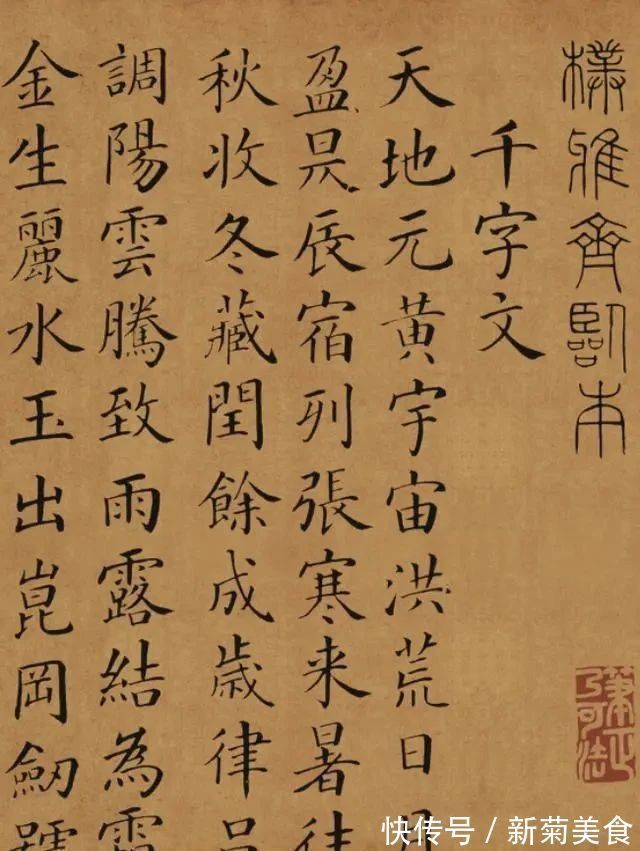 樸雅齋臨本
筆正乃可法
千字文
天地元黄宇宙洪荒日月
盈昃辰宿列張寒来暑往
秋收冬藏閏餘成歲律吕
調陽雲騰致雨露結為霜
金生麗水玉出崑岡劒號
快传号 / 新菊美食